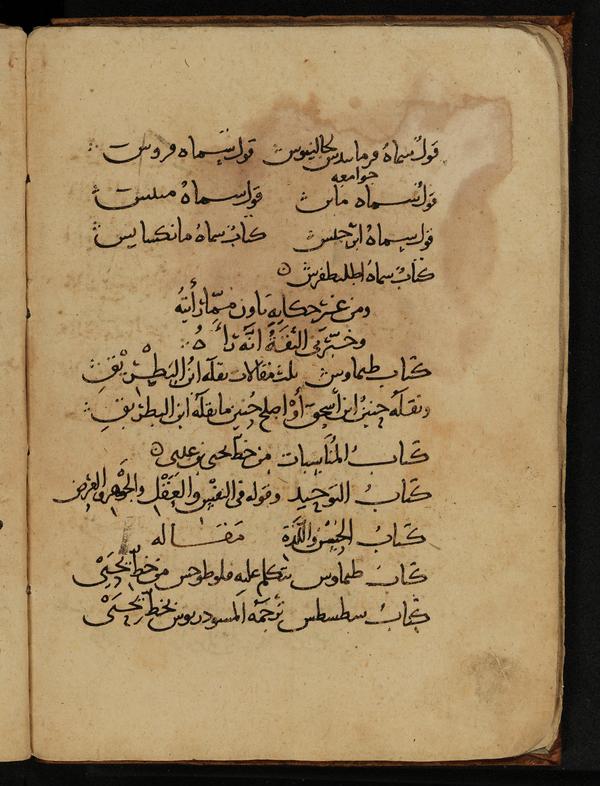 قول سماه فرمانيدس لجالينوس قول سماه فدروس
جوامعه
قول سماه مانن قول سماه مينس
قول سماه ابرخس كتاب سماه مانكسانس
كتاب سماه اطليطقوس
ومن غير حكاية ثاون مما رأيته
وخبرني الثقة انه رآه
كتاب طيماوس ثلث مقالات نقله ابن البطريق
ونقله حنين ابن اسحق أو اصلح حنين ما نقله ابن البطريق
كتاب المناسبات من خط يحيى بن عدى
كتاب التوحيد وقوله في النفس والعقل والجوهر والعرض
كتاب الحس واللذة مقاله
كتاب طيماوس يتكلم عليه فلوطرخس من خط يحيى
كتاب سطسطس ترجمة المسودريوس بخط يحيى